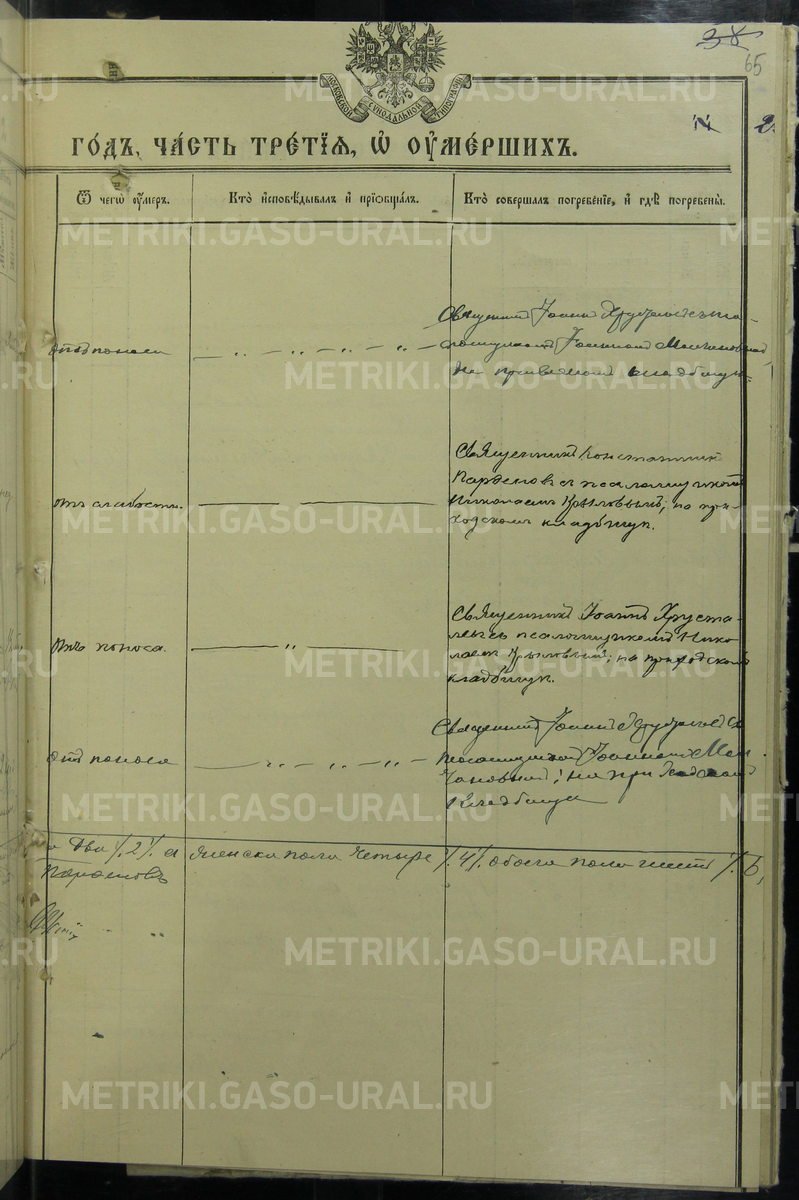 38
65
МОСКОВСКОЙ СѴНОДАЛЬНОЙ ТИПОГРАФІИ
2.
ГО́ДЪ, ЧА́СТЬ ТРЕ́ТІѦ, Ѡ҆ ОУ҆МЕ́РШИХЪ.
Ѿ чегѡ̀ оу҆́меръ.
Кто̀ и҆сповѣ́дывалъ и҆ прїѡбща́лъ.
Кто̀ соверша́лъ погребе́нїе, и҆ гдѣ̀ погребены̀.
отъ поноса
Священникъ Іоаннъ Хрусталевъ съ
псаломщикомъ Іоанномъ
на приходскомъ кладбищѣ.
отъ слабости.
Священникъ Константинъ
Парѳеновъ съ псаломщикомъ
Николаемъ Крыловымъ; на при-
ходскомъ кладбищѣ.
отъ поноса.
Священникъ Іоаннъ Хруста-
левъ съ псаломщикомъ Нико-
лаемъ Крыловымъ; на приходскомъ
кладбищѣ.
отъ поноса
Священникъ Іоаннъ Хрусталевъ съ
псаломщикомъ Іоанномъ
на приходскомъ
кладбищѣ
а два /.2/. а женска пола четыре /.4/. обоего пола шесть /.6.
Парѳеновъ
METRIKI.GASO-URAL.RU